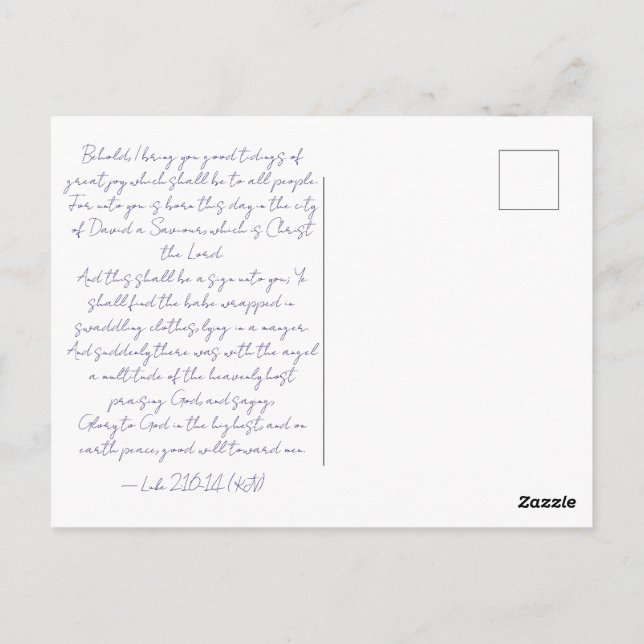 Behold, I bring you good tidings of
great joy which shall be to all people.
For unto you is born this day in the city
of David a Saviour, which is Christ
the Lord.
And this shall be a sign unto you; Ye
shall find the babe wrapped in
swaddling clothes, lying in a manger.
And suddenly there was with the angel
a multitude of the heavenly host
praising God, and saying,
Glory to God in the highest, and on
earth peace, good will toward men.
— Luke 2:10-14 (KJV)
Zazzle